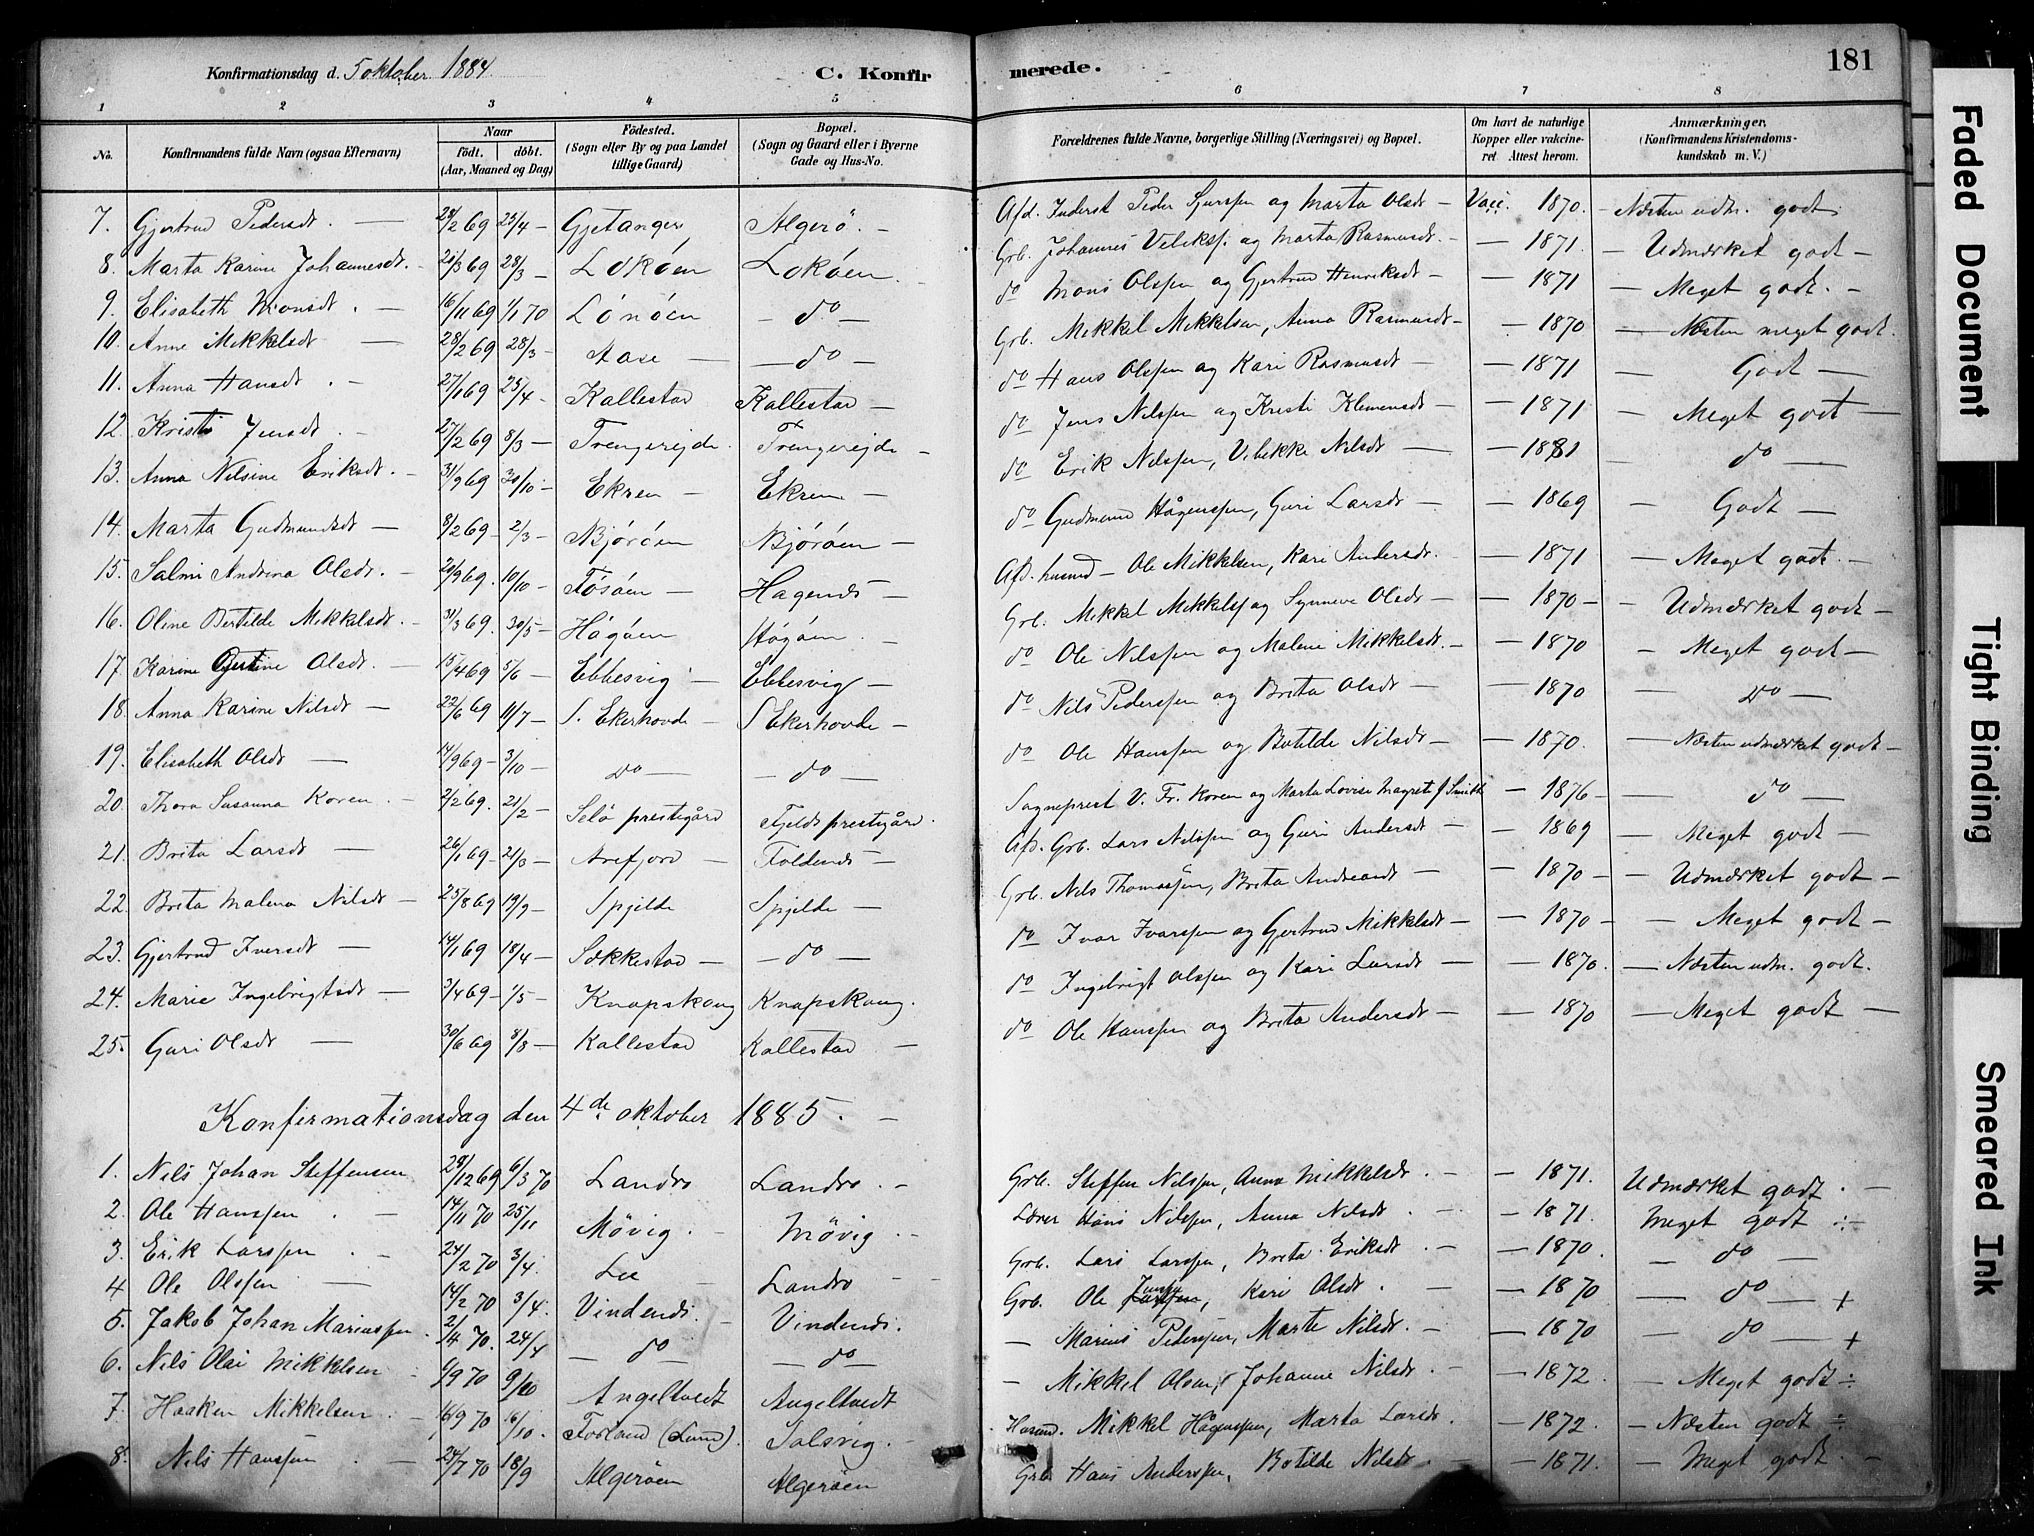 Konfirmationsdag d. 5 oktober 1884. C. Konfirmerede. 181
1 2 3 4 5 6 7 8
No. Konfirmandens fulde Navn (ogsaa Efternavn) Naar födt. döbt. (Aar, Maaned og Dag) Födested. (Sogn eller By og paa Landet tillige Gaard) Bopæl. (Sogn og Gaard eller i Byerne Gade og Hus-No. Forældrenes fulde Navne, borgerlige Stilling (Næringsvei) og Bopæl. Om havt de naturlige Kopper eller vakcineret. Attest herom. Anmærkninger. (Konfirmandens Kristendomskundskab m. V.)
7. Gjertrud Pedersdt. — 28/2 69 25/4 — Gjetanger Algerö. — Afd. Inderst Peder Sjurssen og Marta Olsdt — Vacc. 1870. — Næsten udm. godt
8. Marta Karine Johannesdt. — 21/3 69 28/3 — Lokøen Lokøen Grb. Johannes Veliksp. og Marta Rasmusdt. — — 1871. — Udmærket godt —
9. Elisabeth Monsdt. — 16/11 69 1/1 70 Lønøen — do — do Mons Olssen og Gjertrud Henriksdt — — 1871 — Meget godt. —
10. Anne Mikkelsdt — 28/2 69 28/3 — Aase — — do — Grb. Mikkel Mikkelsen, Anna Rasmusdt — — 1870 — Næsten meget godt.
11. Anna Hansdt. — 27/1 69 25/4 — Kallestad Kallestad — do Hans Olssen og Kari Rasmusdt — — 1871 — Godt —
12. Kristi Jensdt. — 27/2 69 8/3 — Trengereide. Trengereide — do Jens Nilssen og Kristi Klemensdt — — 1871 — Meget godt —
13. Anna Nilsine Eriksdt. — 31/9 69 30/10 — Ekren — Ekren — do Erik Nilssen, Vibekke Nilsdt — — 1881 — do —
14. Marta Gudmundsdt — 8/2 69 — 2/3 — Bjørøen Bjørøen — do Gudmund Hågenssen, Guri Larsdt — — 1869 — Godt —
15. Salmi Andrina Olsdt. — 20/9 69. 10/10 — Tøsøen — Hagenæs — Afd. husmd — Ole Mikkelsen, Kari Andersdt. — 1871 — Meget godt. —
16. Oline Bertilde Mikkelsdt. — 31/3 69. 30/5 — Høgøen Høgøen. — Grb. Mikkel Mikkelsp og Synneve Olsdt — — 1870 — — Udmærket godt —
17. Karine Olsdt. — 15/4 69 5/6 — Ebbesvig — Ebbesvig — do Ole Nilssen og Malene Mikkelsdt. — — 1870 — Meget godt —
18. Anna Karine Nilsdt — 22/6 69 11/7 — S. Ekerhovde — S Ekerhovde — do Nils Pederssen og Brita Olsdt — — 1870 — Do —
19. Elisabeth Olsdt — 14/9 69 — 3/10 — Do — — do — do Ole Hanssen og Botilde Nilsdt — — 1870. — Næsten udmærket godt —
20. Thora Susanna Koren. — 2/2 69. 21/2 — Selø prestegård Fjelds prestegård. Sogneprest V. Fr. Koren og Marta Lovise Magrete f Smith — 1876 — — do —
21. Brita Larsdt — 26/1 69 — 21/3 — Arefjord — Foldenæs — Afd. Grb. Lars Nilssen og Guri Andersdt — — 1869 — Meget godt —
22 Brita Malena Nilsdt — 25/8 69 19/9 — Spjelde Spjelde — Grb. Nils Thomassen, Brita Andreasdt — — 1870 — — Udmærket godt —
23. Gjertrud Iversdt — 14/1 69 18/4 — Sekkestad — — do — do Ivar Ivarssen og Gjertrud Mikkelsdt — — 1870 — — Meget godt —
24. Marie Ingebrigtsdt — 3/4 69 — 1/5 — Knapskoug Knapskoug. do Ingebrigt Olssen og Kari Larsdt — — 1870. — Næsten udm. godt.
25. Guri Olsdt — 30/6 69 8/8 — Kallestad Kallestad — do Ole Hanssen og Brita Andersdt — — 1870 — Meget godt —
Konfirmationsdag den 4de oktober 1885. —
1. Nils Johan Steffensen 28/12 69 6/3 70 Landro Landro. — Grb. Steffen Nilssen, Anna Mikkelsdt. — — 1871. Udmærket godt. —
2. Ole Hanssen. — 14/11 70 25/11 Møvig. — Møvig. — Lærer Hans Nilssen, Anna Nilsdt. — — 1871. Meget godt ÷
3. Erik Larssen. — 24/2 70 3/4. Lee — Landro — Grb. Lars Larssen, Brita Eriksdt. — — 1870. — do —
4 Ole Olssen — 14/2 70 3/4. Vindenæs. Vindenæs. Grb. Ole Jenssen, Kari Olsdt. — — 1870 — do — +
5. Jakob Johan Mariussen. 2/4 70. 24/4 — do — — do — — Marius Pederssen, Marte Nilsdt. — — 1870 — do — +
6. Nils Olai Mikkelsen — 6/9 70 9/10 Angeltvedt Angeltvedt — Mikkel Olsen, Johanne Nilsdt. — — 1872. — Meget godt ÷
7. Haaken Mikkelsen. — 16/9 70 16/10. Forland (Sund). Solsvig. — Husmd. Mikkel Hågenssen, Marta Larsdt. — 1872. — Næsten godt ÷
8. Nils Hanssen. — 24/7 70 18/9 Algerøen Algerøen Grb Hans Anderssen, Botilde Nilsdt — — 1871. — Meget godt. —
Faded Document
Tight Binding
Smeared Ink